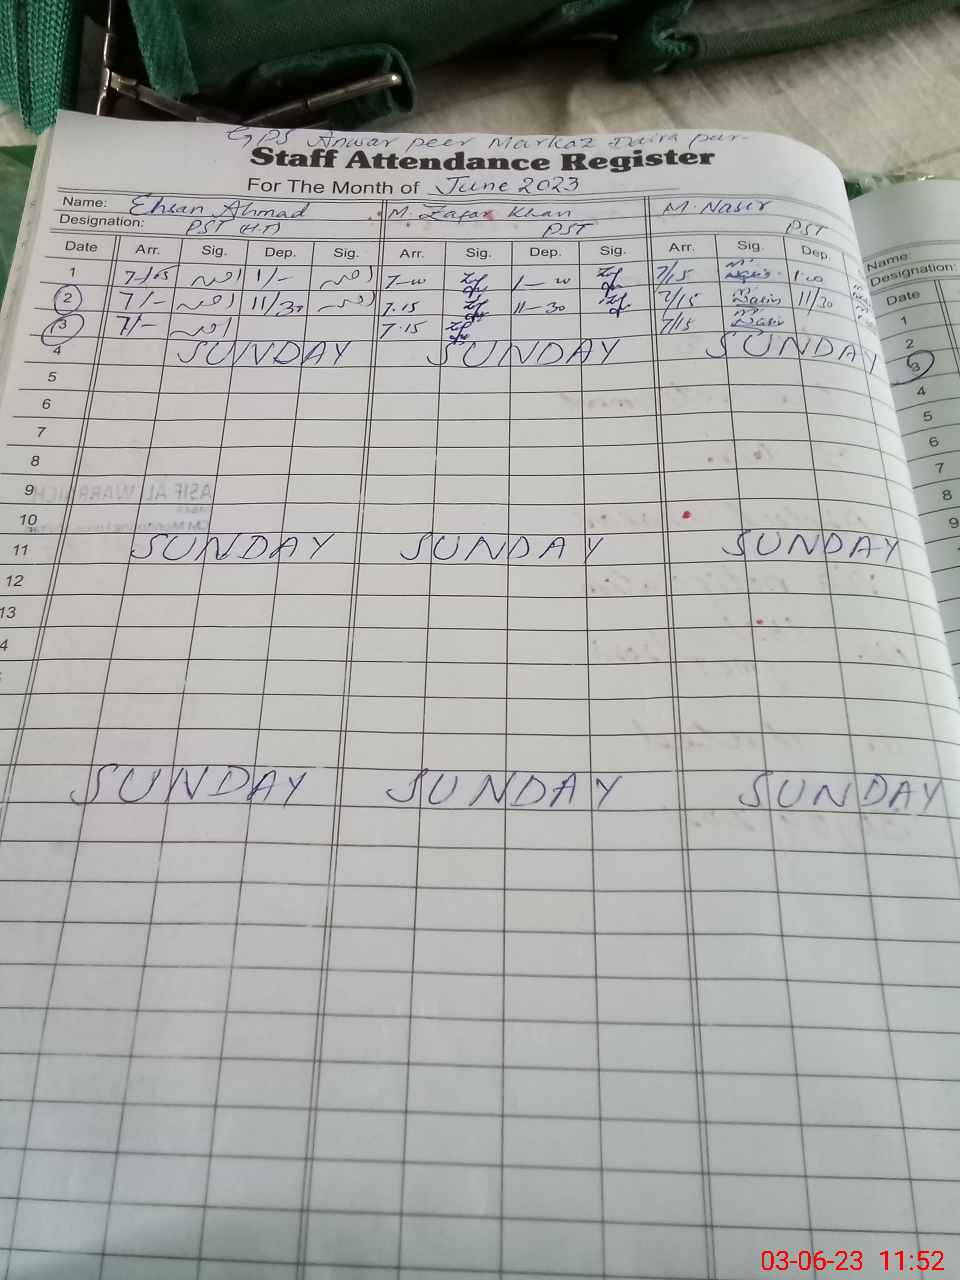 GPS Anwar peer Markaz Daira pur
Staff Attendance Register
For The Month of June 2023
Name: Ehsan Ahmad M. Zafar Khan M. Nasir
Designation: PST (H.T) PST PST
Date Arr. Sig. Dep. Sig. Arr. Sig. Dep. Sig. Arr. Sig. Dep.
1 7-/05 1/- 7-00 1-00 7/15 1-00
2 7/- 11/30 7.15 11-30 7/15 11/30
3 7/- 7.15 7/15
4 SUNDAY SUNDAY SUNDAY
5
6
7
8
9
10
11 SUNDAY SUNDAY SUNDAY
12
13
4
SUNDAY SUNDAY SUNDAY
Name:
Designation:
Date
1
2
3
4
5
6
7
8
9
03-06-23 11:52